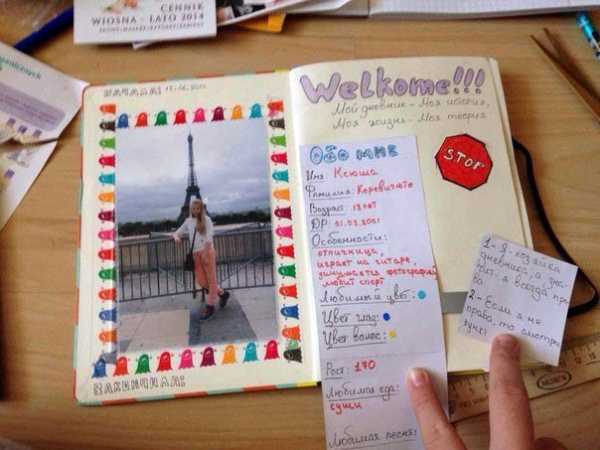 CENNIK
WIOSNA - LATO 2014
НАЧАЛА:
ЗАКОНЧИЛА:
Welkome!!!
Мой дневник - Моя
Моя жизнь - Моя теория
STOP
Обо мне
Имя: Ксюша
Фамилия:
Возраст: 13 лет
ДР: 01.03.2001
Особенности:
отличница,
играет на гитаре,
занимается фотографией
любит спорт
Любимый цвет:
Цвет глаз:
Цвет волос:
Рост: 170
Любимая еда:
суши
Любимая песня:
1- Я - хозяйка
дневника, а
я всегда пра
ва
2- Если я не
права, то смотри